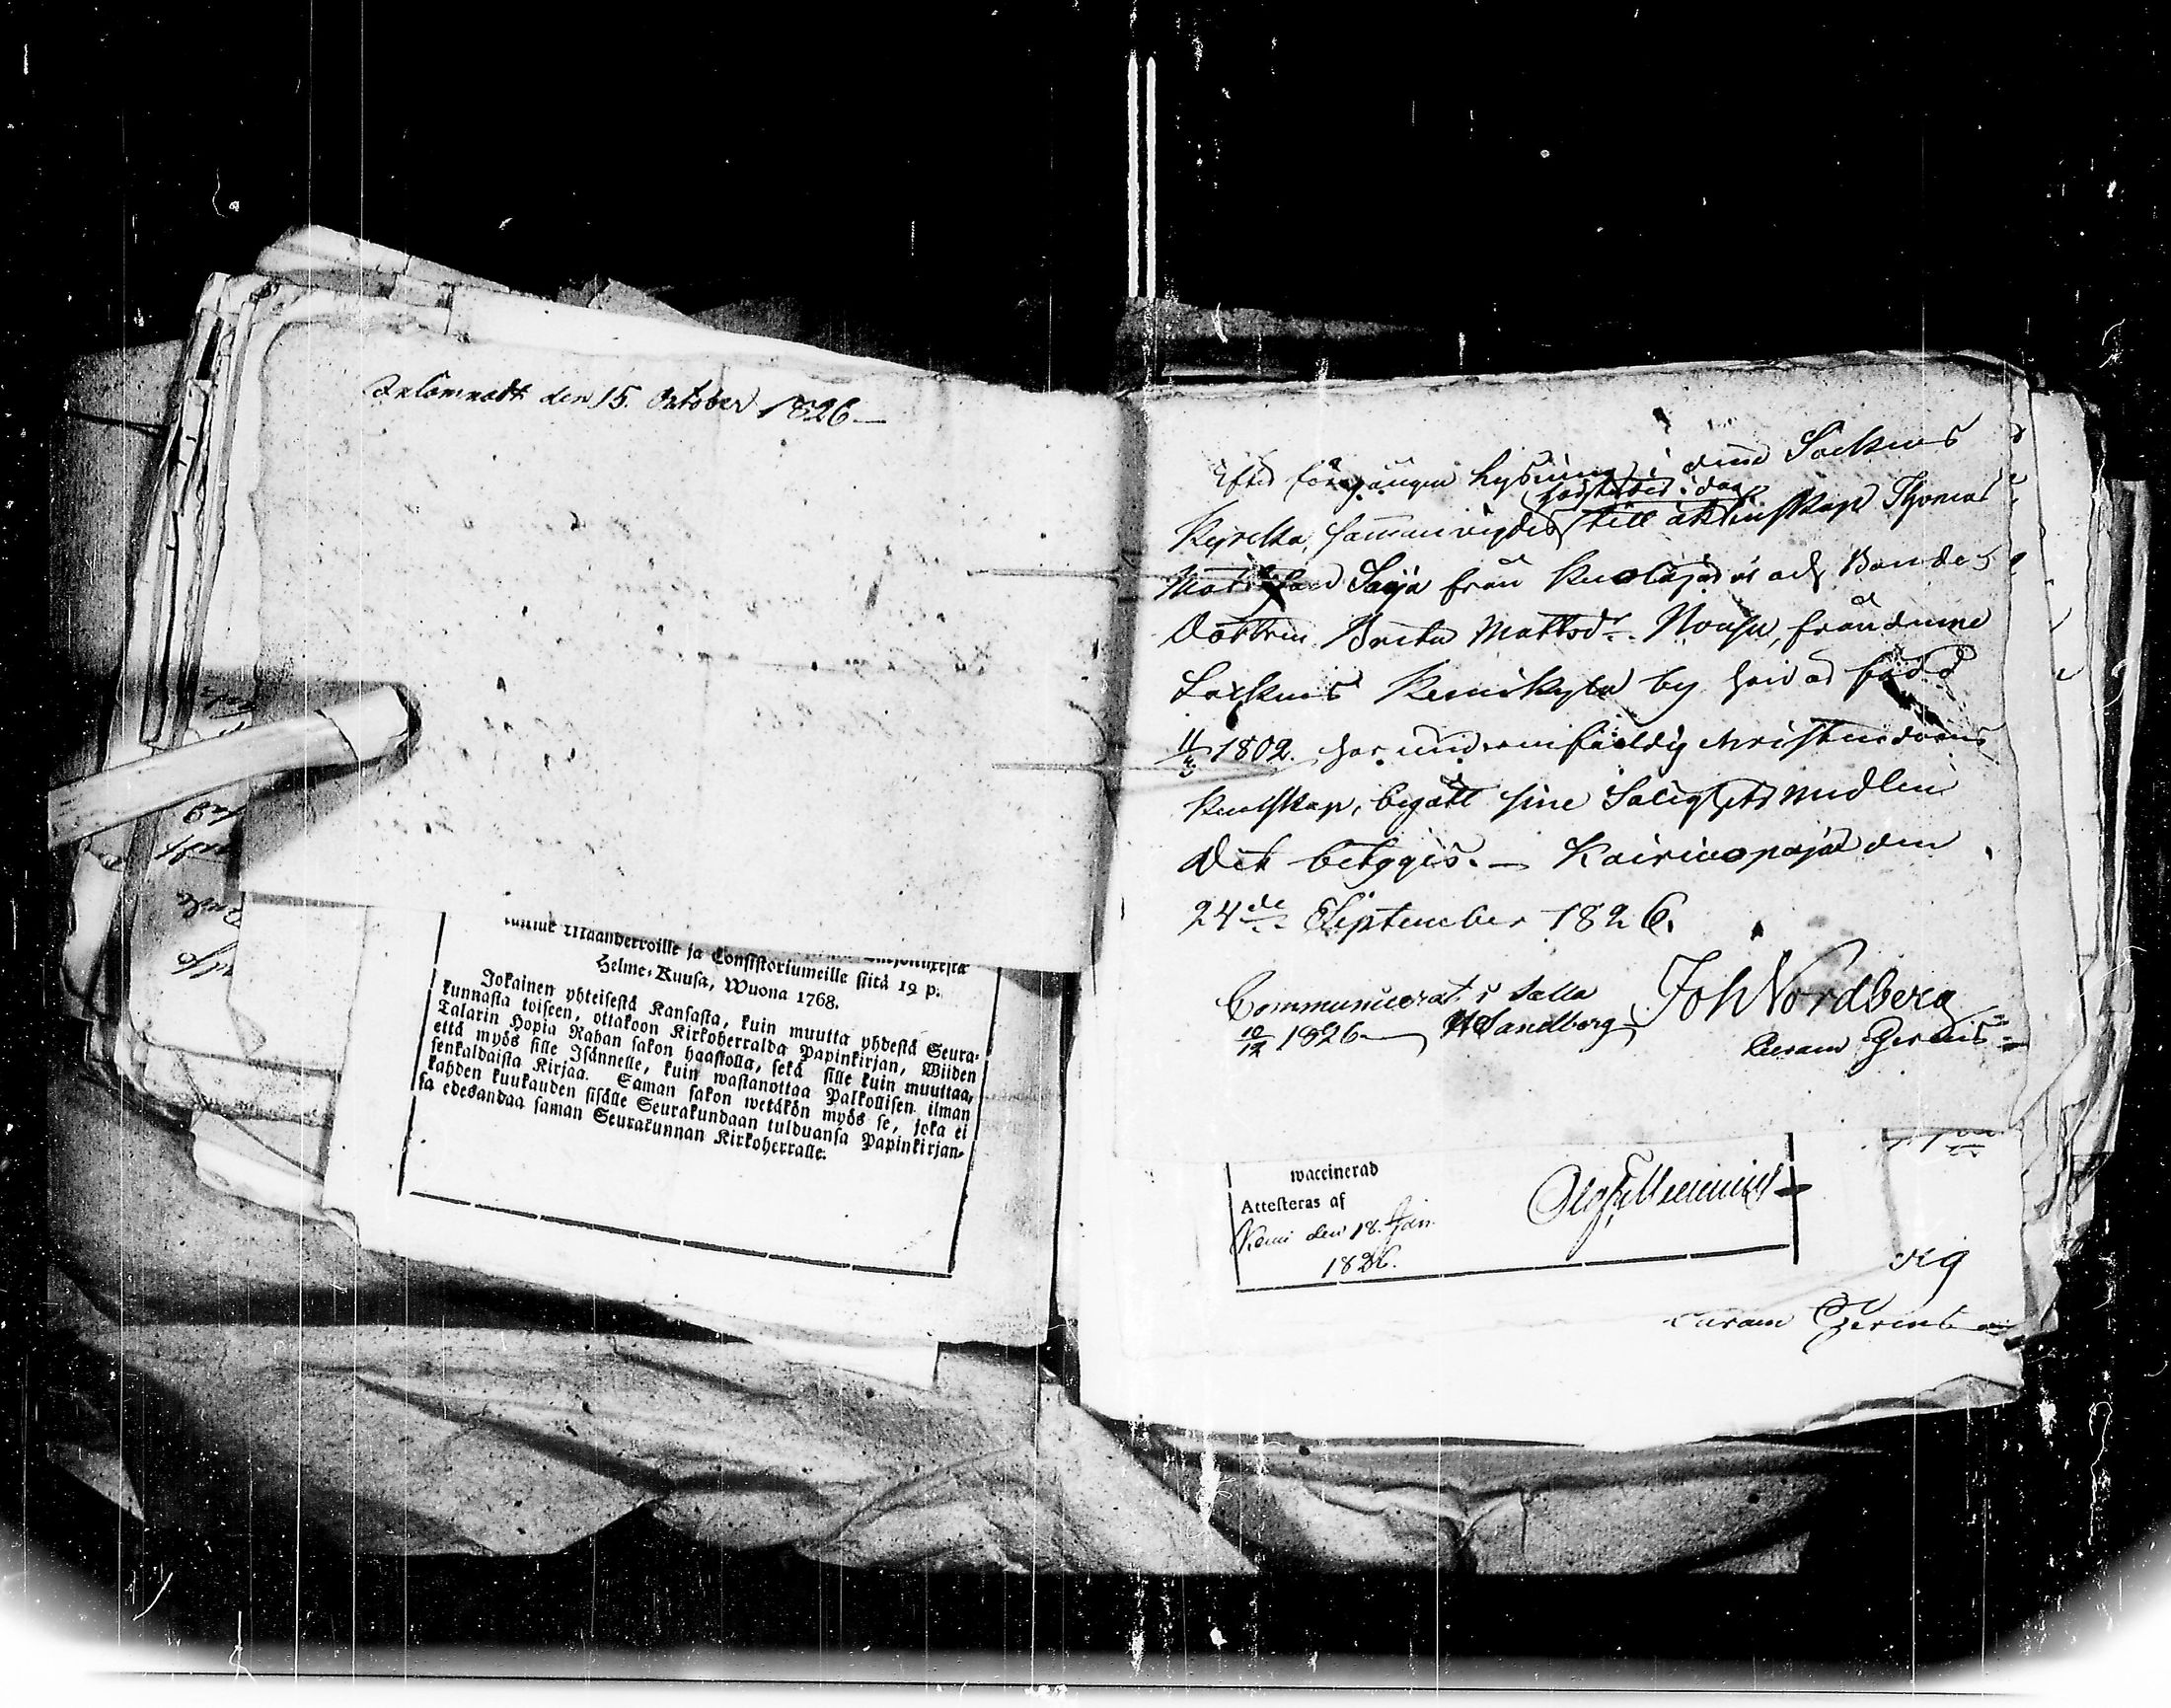 Inlämnadt den 15. October 1826
Maanherroille ja Consistoriumeille siitä 19 p.
Helme-Kuusa, Wuona 1768.
Jokainen yhteisestä Kansasta, kuin muutta yhdestä Seura-
kunnasta toiseen, ottakoon Kirkoherralda Papinkirjan, Wiiden
Talarin Hopia Rahan sakon haastolla, sekä sille kuin muuttaa,
että myös sille Isännelle, kuin wastanottaa Palkollisen ilman
senkaldaista Kirjaa. Saman sakon wetäkön myös se, joka ei
kahden kuukauden sisälle Seurakundaan tulduansa Papinkirjan-
sa edesandaa saman Seurakunnan Kirkoherralle.
Efter föregången Lysning i denne Sockens
Kyrcka, sammanvigdes till äktenskap Thomas
Matsson Saija från Kuolajärvi och Bonde-
Dottren Brita Mattsdr. från denne
Sockens Kemikylä by hvilcken född
11/3 1802. har enfaldig christendoms
kunskap, begått sine Salighets medlen
Det betygas. — Kairinapaja den
24de September 1826.
Joh Nordberg
Communicerat i Salla
10/12 1826 — Sandberg
Curam Gerens
waccinerad
Attesteras af
Kemi den 18. Jan.
1826.
Curam Gerens